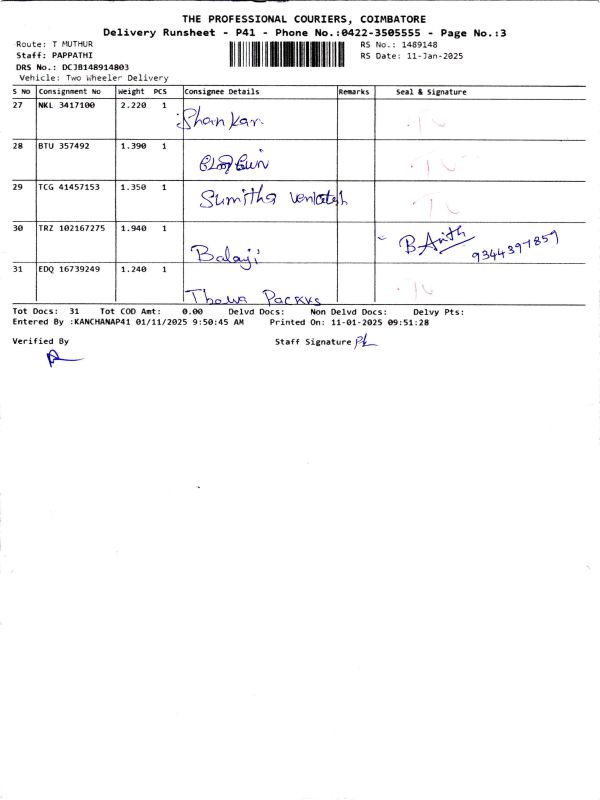 THE PROFESSIONAL COURIERS, COIMBATORE
Delivery Runsheet - P41 - Phone No.:0422-3505555 - Page No.:3
Route: T MUTHUR RS No.: 1489148
Staff: PAPPATHI RS Date: 11-Jan-2025
DRS No.: DCJB148914803
Vehicle: Two Wheeler Delivery
S No Consignment No Weight PCS Consignee Details Remarks Seal & Signature
27 NKL 3417100 2.220 1
Shankar
28 BTU 357492 1.390 1
29 TCG 41457153 1.350 1
Sumitha Venkatesh
30 TRZ 102167275 1.940 1
Balaji B Arith 9344397859
31 EDQ 16739249 1.240 1
Tot Docs: 31 Tot COD Amt: 0.00 Delvd Docs: Non Delvd Docs: Delvy Pts:
Entered By :KANCHANAP41 01/11/2025 9:50:45 AM Printed On: 11-01-2025 09:51:28
Verified By Staff Signature